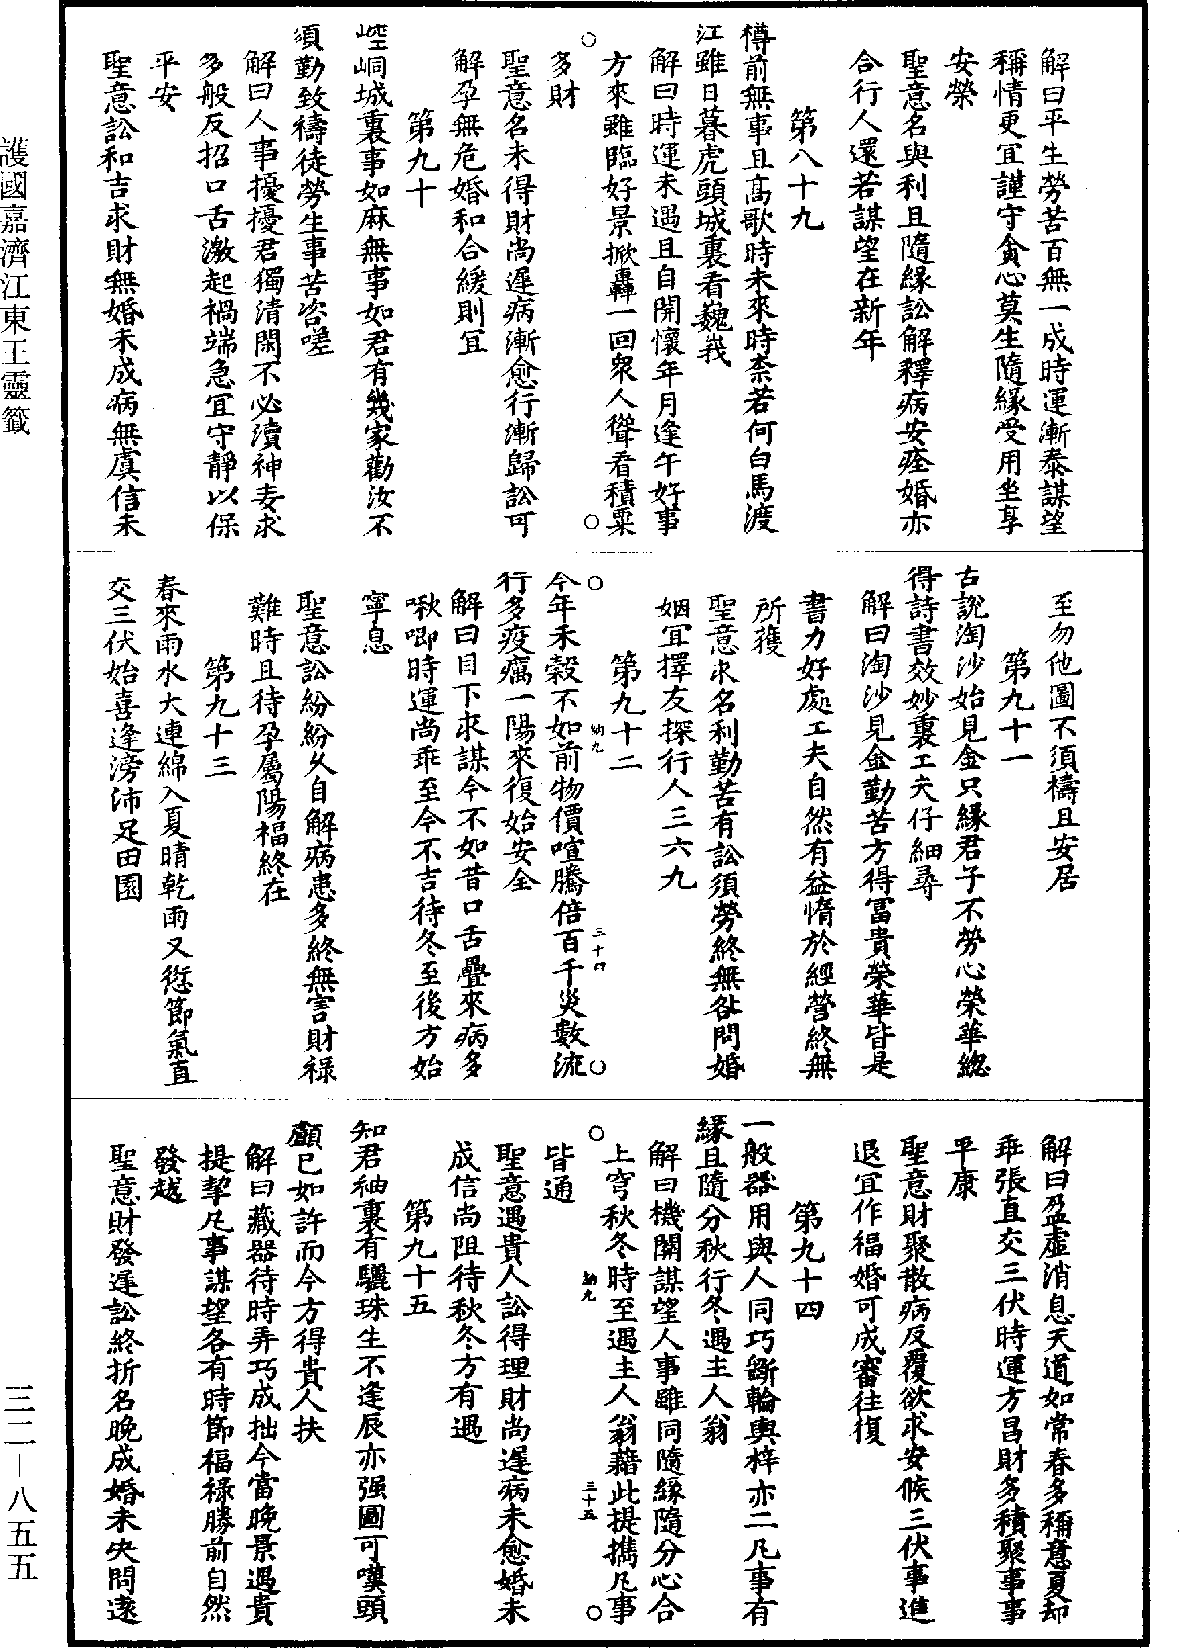 解曰平生勞苦百無一成時運漸泰謀望
稱情更宜謹守貪心莫生隨緣受用坐享
安榮
聖意名與利且隨緣訟解釋病安痊婚亦
合行人還若謀望在新年
第八十九
樽前無事且高歌時未來時柰若何白馬渡
江雖日暮虎頭城裏看巍峩
解曰時運未遇且自開懷年月逢午好事
方來雖臨好景掀轟一回衆人聳看積粟
多財
聖意名未得財尚遲病漸愈行漸歸訟可
解孕無危婚和合緩則宜
第九十
崆峒城裏事如麻無事如君有幾家勸汝不
須勤致禱徒勞生事苦咨嗟
解曰人事擾擾君獨清閑不必瀆神妄求
多般反招口舌激起禍端急宜守靜以保
平安
聖意訟和吉求財無婚未成病無虞信未
至勿他圖不須禱且安居
第九十一
古說淘沙始見金只緣君子不勞心榮華緫
得詩書效妙裏工夫仔細尋
解曰淘沙見金勤苦方得富貴榮華皆是
書力好處工夫自然有益惰於經營終無
所獲
聖意求名利勤苦有訟須勞終無咎問婚
姻宜擇友探行人三六九
第九十二
今年禾穀不如前物價喧騰倍百千災數流
行多疫癘一陽來復始安全
解曰目下求謀今不如昔口舌疊來病多
啾唧時運尚乖至今不吉待冬至後方始
寧息
聖意訟紛紛乆自解病患多終無害財禄
難時且待孕屬陽福終在
第九十三
春來雨水大連綿入夏晴乾雨又愆節氣直
交三伏始喜逢滂沛足田園
解曰盈虛消息天道如常春多稱意夏却
乖張直交三伏時運方昌財多積聚事事
平康
聖意財聚散病反覆欲求安候三伏事進
退宜作福婚可成審往復
第九十四
一般器用與人同巧斵輪輿梓亦工凡事有
緣且隨分秋行冬遇主人翁
解曰機關謀望人事雖同隨緣隨分心合
上穹秋冬時至遇主人翁藉此提攜凡事
皆通
聖意遇貴人訟得理財尚遲病未愈婚未
成信尚阻待秋冬方有遇
第九十五
知君袖裏有驪珠生不逢辰亦强圖可嘆頭
顱已如許而今方得貴人扶
解曰藏器待時弄巧成拙今當晚景遇貴
提挈凡事謀望各有時節福禄勝前自然
發越
聖意財發遲訟終折名晚成婚未决問遠
納九
三十四
納九
三十五
護國嘉濟江東王靈籤
三二—八五五